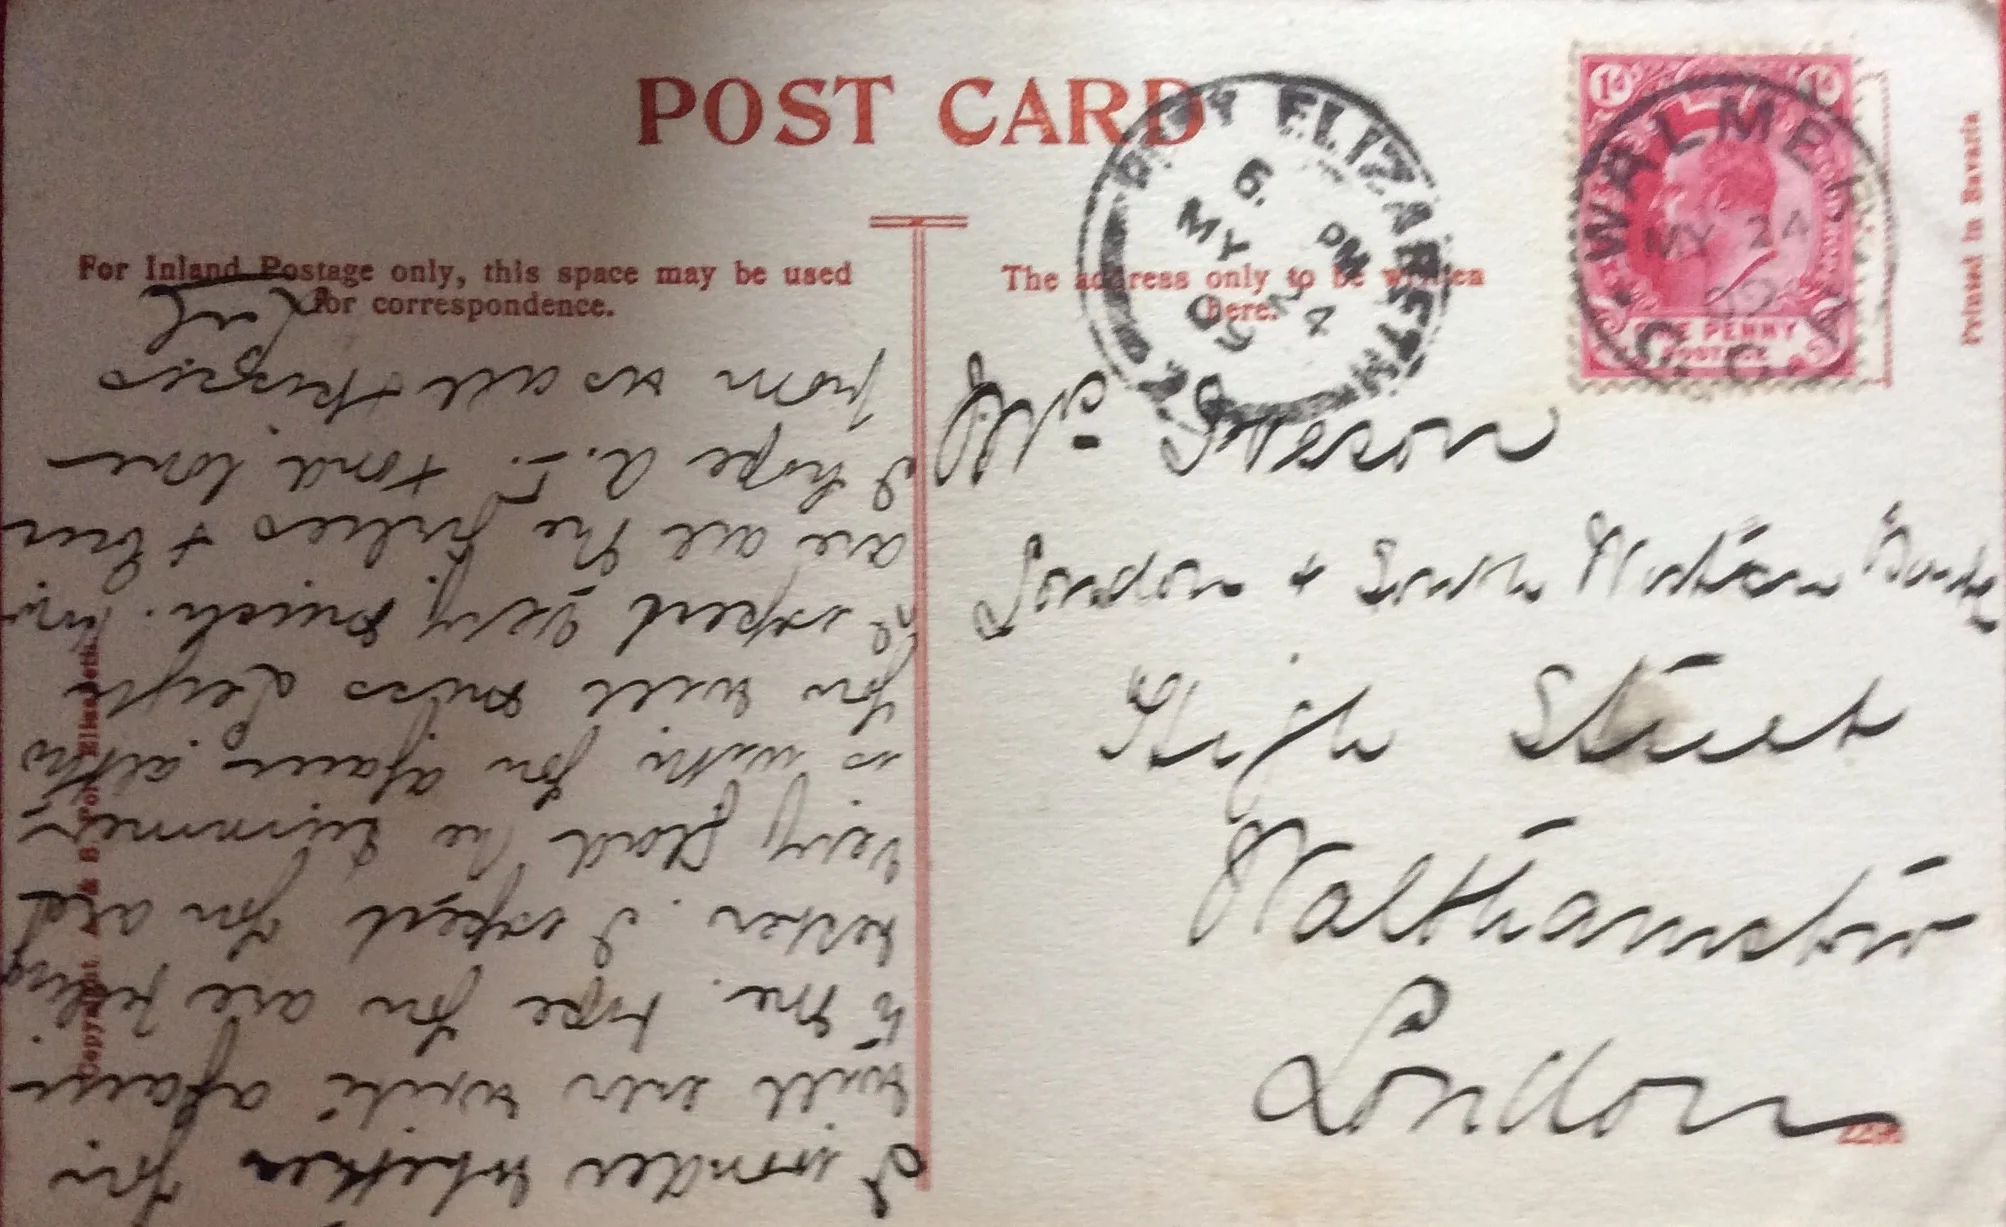 POST CARD
For Inland Postage only, this space may be used
for correspondence.
The address only to be written
here.
PORT ELIZABETH
6 PM
MY 24
09
WALMER
MY 24
09
C.G.H.
ONE PENNY
POSTAGE
Printed in Bavaria
London & South Western Bank
High Street
Walthamstow
London
2298
Copyright A & B, Port Elizabeth
I wonder whether you
will ever write again
to me. hope you are feeling
better. I expect you are
very glad the summer
is with you again altho
you will miss
I expect very much. how
are all the & Ern
I hope A.1. fond love
from us all + kisses